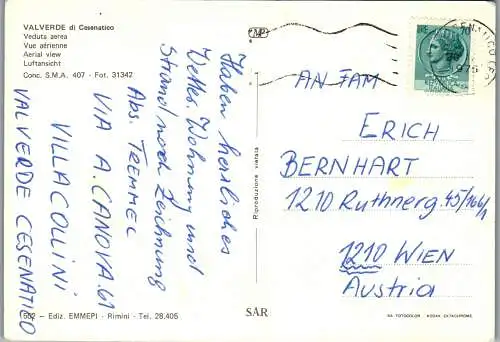 VALVERDE di Cesenatico
Veduta aerea
Vue aérienne
Aerial view
Luftansicht
Conc. S.M.A. 407 - Fot. 31342
Haben herrliches
Wetter. Wohnung und
Strand nach Zeichnung
Abs. TREMMEL
VIA A. CANOVA. 61
VILLA COLLINI
VALVERDE CESENATICO
1652 - Ediz. EMMEPI - Rimini - Tel. 28.406
MP
Riproduzione vietata
SAR
AN FAM
ERICH
BERNHART
1210 Ruthnerg. 45/166/1
1210 WIEN
Austria
NA FOTOCOLOR KODAK EKTACHROME